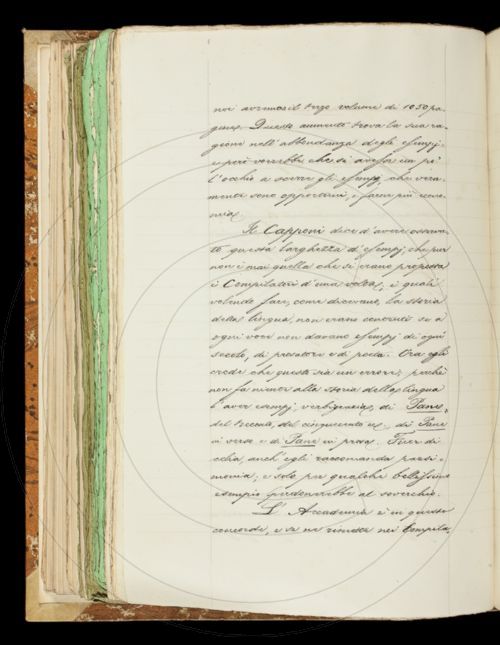 noi avremo il terzo volume di 1050 pa-
gine. Questo aumento trova la sua ra-
gione nell'abbondanza degli esempj.
e però vorrebbe che si avesse un po'
l'occhio a scerre gli esempj che vera-
mente sono opportuni, e farne più econo-
mia.
Il Capponi dice d'avere osserva-
to questa larghezza d'esempj; che pur
non è mai quella che si erano proposta
i Compilatori d'una volta, i quali
volendo fare, come dicevano, la storia
della lingua, non erano contenti se a
ogni voce non davano esempj di ogni
secolo, di prosatore e di poeta. Ora egli
crede che questo sia un errore; perchè
non fa niente alla storia della lingua
l'aver esempj, verbigrazia, di Pane,
del trecento, del cinquecento ec., di Pane
in verso e di Pane in prosa. Finì di-
cendo, anch'egli raccomanda parsi-
monia; e solo per qualche bellissimo
esempio prederebbe al soverchio.
L'Accademia è in questo
concorde, e se ne rimette nei Compila-